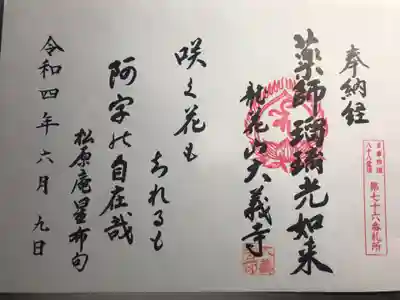 奉納経
八十八霊場
第七十六番札所
薬師瑠璃光如来
龍花山大義寺
咲く花も
ちれるも
阿字の自在哉
松原庵星布句
令和四年六月九日